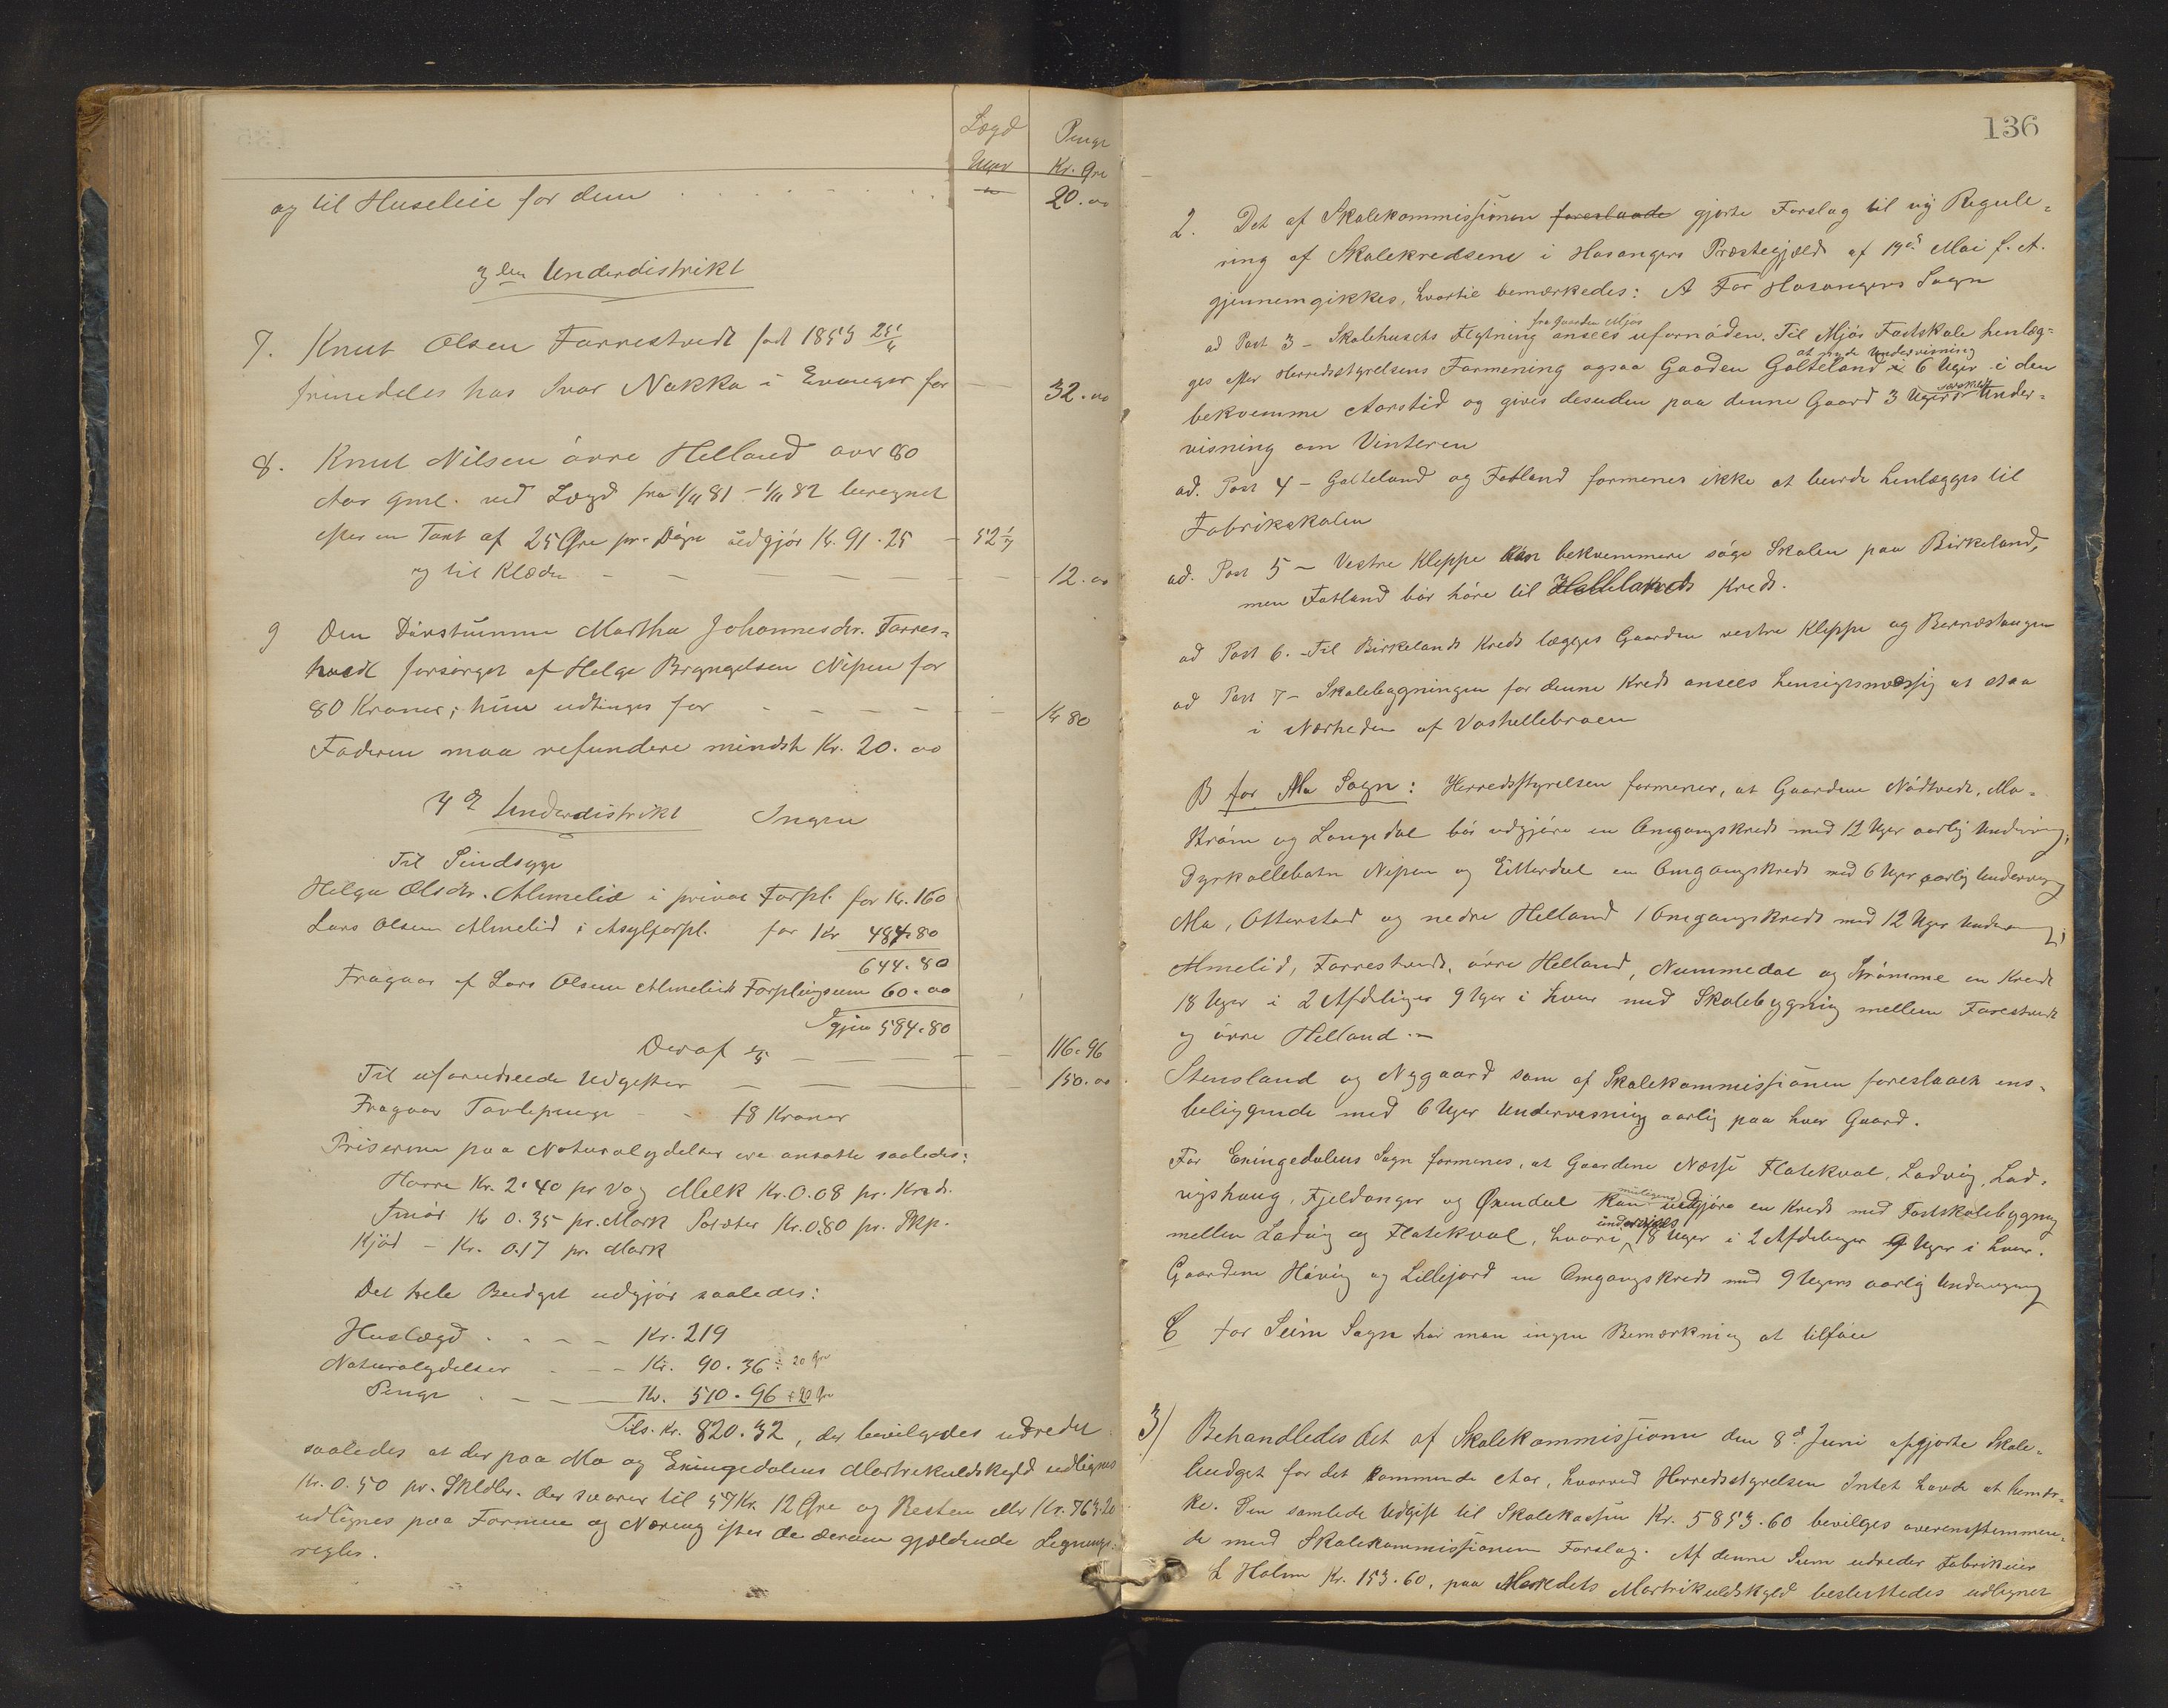 Lægd Penge
Uger Kr. Øre
og til Huseleie for dem . . . . . . . " 20.00
3die Underdistrikt
7. Knut Olsen Farrestvedt født 1853 25/4
fremdeles hos Ivar Nakka i Evanger for — 32.00
8. Knut Nilsen övre Helland over 80
Aar gml. ved Lægd fra 1/11 81 – 1/11 82 beregnet
efter en Taxt af 25 Øre pr. Døgn udgjör Kr. 91.25 — 52 1/7
og til Klæder — — — — 12.00
9 Den Dövstumme Martha Johannesdr. Farres-
tvedt forsörget af Helge Bryngelsen Nipen for
80 Kroner; hun udtinges for — — — — Kr 80
Faderen maa refundere mindst Kr. 20.00
4de Underdistrikt Ingen
Til Sindsyge
Helga Olsdr. Almelid i privat Forpl. for Kr. 160
Lars Olsen Almelid i Asylforpl. for Kr 484.80
644.80
Fragaar af Lars Olsen Almelids Forplingsum 60.00
Igjen 584.80
Deraf 1/5 — — — — 116.96
Til uforudseede Udgifter — — — 150.00
Fragaar Tavlepenge - - 18 Kroner
Priserne paa Naturalydelser ere ansatte saaledes:
Havre Kr. 2.40 pr Vog Melk Kr. 0.08 pr. Krds.
Smör Kr 0.35 pr. Mark Poteter Kr. 0.80 pr. Skp.
Kjöd – Kr. 0.17 pr. Mark
Det hele Budget udgjör saaledes:
Huslægd . . - - Kr. 219
Naturalydelser - - - Kr. 90.36 ÷ 20 Øre
Penge . - - - Kr. 510.96 + 20 Øre
Tils. Kr. 820.32, der bevilgedes udredet
saaledes at der paa Mo og Exingedalens Martrikulskyld udlignes
Kr. 0.50 pr. Skldlr. der svarer til 57 Kr. 12 Øre og Resten eller Kr. 763.20
udlignes paa Formue og Næring efter de derom gjældende Lignings-
regler.
136
2. Det af Skolekommissionen foreslaade gjorte Forslag til ny Regule-
ring af Skolekredsene i Hosangers Præstegjæld af 19de Mai f. A.
gjennemgikkes, hvortil bemærkedes: A For Hosangers Sogn
fra Gaarden Mjös
ad Post 3 – Skolehusets Flytning ansees ufornöden. Til Mjös Fastskole henlæg-
at nyde Undervisning
ges efter Herredsstyrelsens Formening ogsaa Gaaden Galteland 6 Uger i den
særskilt
bekvemme Aarstid og gives desuden paa denne Gaard 3 Ugers Under-
visning om Vinteren
ad. Post 4 – Galteland og Fotland formenes ikke at burde henlægges til
Fabrikskolen
ad. Post 5 – Vestre Kleppe kan bekvemmere söge Skolen paa Birkeland,
men Fotland bör höre til Hellelands Kreds.
ad Post 6. – Til Birkelands Kreds lægges Gaarden vestre Kleppe og Bernæstangen
ad Post 7 – Skolebygningen for denne Kreds ansees hensigtsmæssig at staa
i Nærheden af Vashellebroen
B for Mo Sogn: Herredsstyrelsen formener, at Gaardene Nödtvedt, Mo-
ström og Langedal bör udgjöre en Omgangskreds med 12 Uger aarlig Undervisng;
Dyrkollebotn Nipen og Eitterdal en Omgangskreds med 6 Uger aarlig Undervisng
Mo, Otterstad og nedre Helland 1 Omgangskreds med 12 Uger Undervisng;
Almelid, Farrestvedt, övre Helland, Nummedal og Strömme en Kreds
18 Uger i 2 Afdelinger 9 Uger i hver med Skolebygning mellem Farestvedt
og övre Helland. —
Stensland og Nygaard som af Skolekommissionen foreslaaet ens-
beliggende med 6 Uger Undervisning aarlig paa hver Gaard.
For Exingedalens Sogn formenes, at Gaardene Næsse Flatekval, Ladvig, Lad-
muligens
vigshaug, Fjeldanger og Øxendal kan udgjöre en Kreds med Fastskolebygning
undervises
mellem Ladvig og Flatekval, hvori 18 Uger i 2 Afdelinger 9 Uger i hver.
Gaardene Hövig og Lillejord en Omgangskreds med 9 Ugers aarlig Undervisning
C For Seim Sogn har man ingen Bemærkning at tilföie
3) Behandledes det af Skolekommissionen den 8de Juni afgjorte Skole-
budget for det kommende Aar, hvorved Herredsstyrelsen Intet havde at bemær-
ke. Den samlede Udgift til Skolekassen Kr. 5853.60 bevilges overensstemmen-
de med Skolekommissionens Forslag. Af denne Sum udreder Fabrikeier
L Holm Kr. 153.60, paa Herredets Martrikulskyld besluttedes udlignet